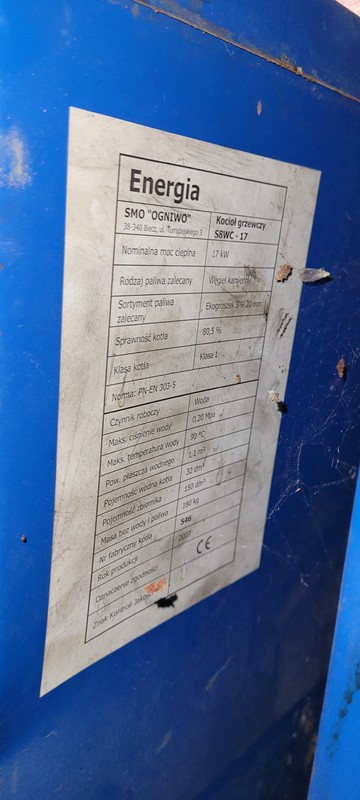 Energia
SMO "OGNIWO"
38-340 Biecz, ul. Tumidajskiego 3
Kocioł grzewczy
S8WC - 17
Nominalna moc cieplna 17 kW
Rodzaj paliwa zalecany Węgiel kamienny
Sortyment paliwa
zalecany
Ekogroszek 5 ÷ 20 mm
Sprawność kotła 80,5 %
Klasa kotła Klasa 1
Norma: PN-EN 303-5
Czynnik roboczy Woda
Maks. ciśnienie wody 0,20 Mpa
Maks. temperatura wody 90 °C
Pow. płaszcza wodnego 1,1 m²
Pojemność wodna kotła 32 dm³
Pojemność zbiornika 150 dm³
Masa bez wody i paliwa 180 kg
Nr fabryczny kotła 546
Rok produkcji 2007
Oznaczenie zgodności CE
Znak Kontroli Jakości